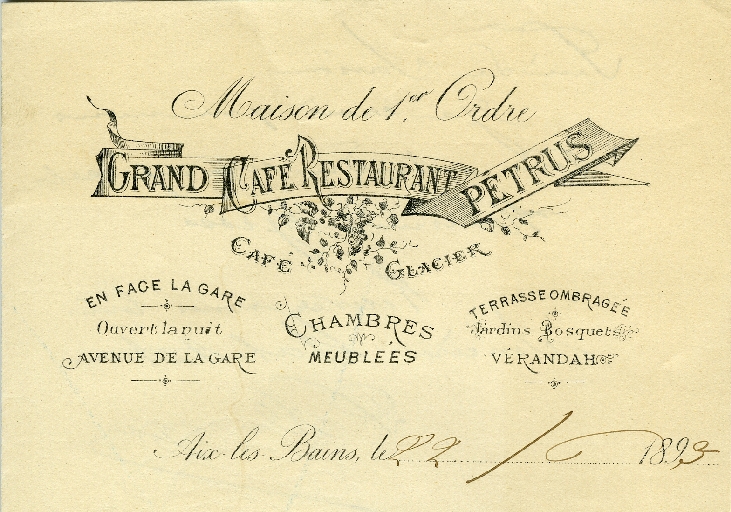 Maison de 1er Ordre
GRAND CAFÉ RESTAURANT PETRUS
CAFÉ GLACIER
EN FACE LA GARE
Ouvert la nuit
AVENUE DE LA GARE
CHAMBRES
MEUBLÉES
TERRASSE OMBRAGÉE
Jardins Bosquets
VÉRANDAH
Aix-les-Bains, le 22 / 1893